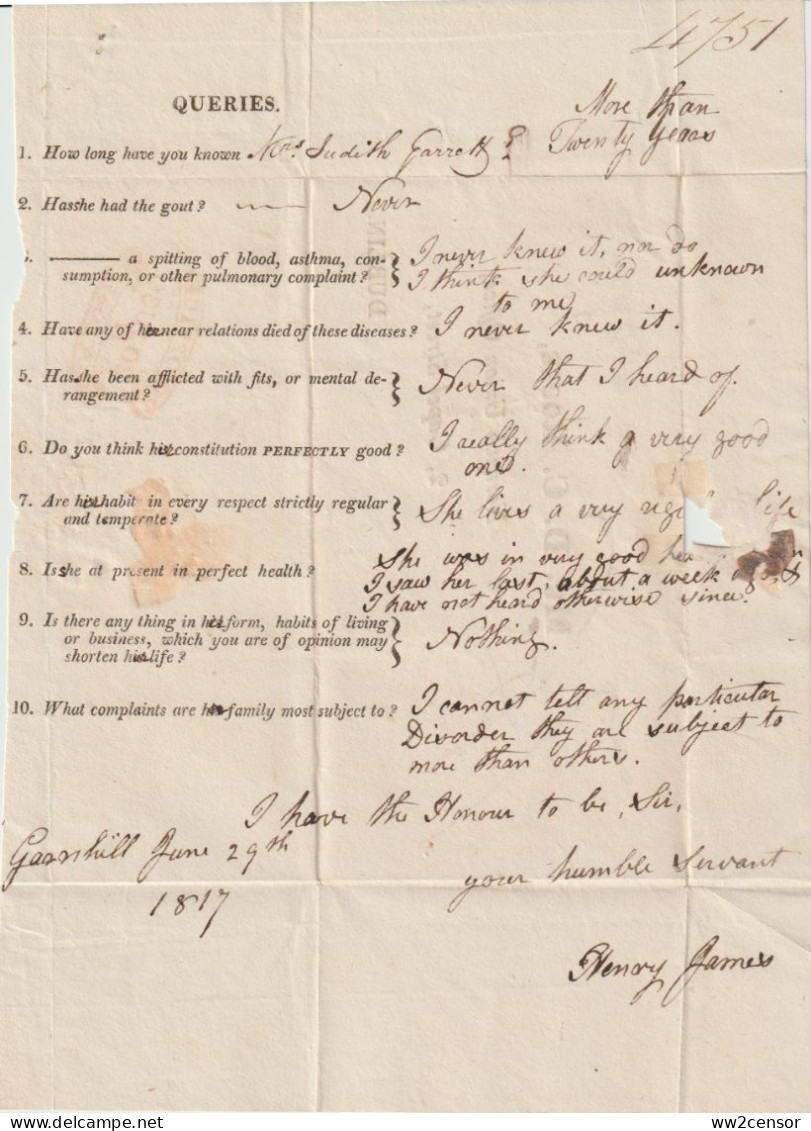 4751
QUERIES.
More than
1. How long have you known Mrs Judith Garrett? Twenty years
2. Has she had the gout? Never
a spitting of blood, asthma, con- I never knew it, nor do
sumption, or other pulmonary complaint? I think she could unknown
to me
4. Have any of her near relations died of these diseases? I never knew it.
5. Has she been afflicted with fits, or mental de- Never that I heard of.
rangement?
6. Do you think her constitution PERFECTLY good? I really think a very good
one.
7. Are her habit in every respect strictly regular She lives a very life
and temperate?
She was in very good
8. Is she at present in perfect health? I saw her last, about a week ago, &
I have not heard otherwise since.
9. Is there any thing in her form, habits of living
or business, which you are of opinion may Nothing.
shorten her life?
10. What complaints are her family most subject to? I cannot tell any particular
Disorder they are subject to
more than others.
I have the Honour to be, Sir,
Garnhill June 29th
your humble Servant
1817
Henry James
www.delcampe.net
ww2censor